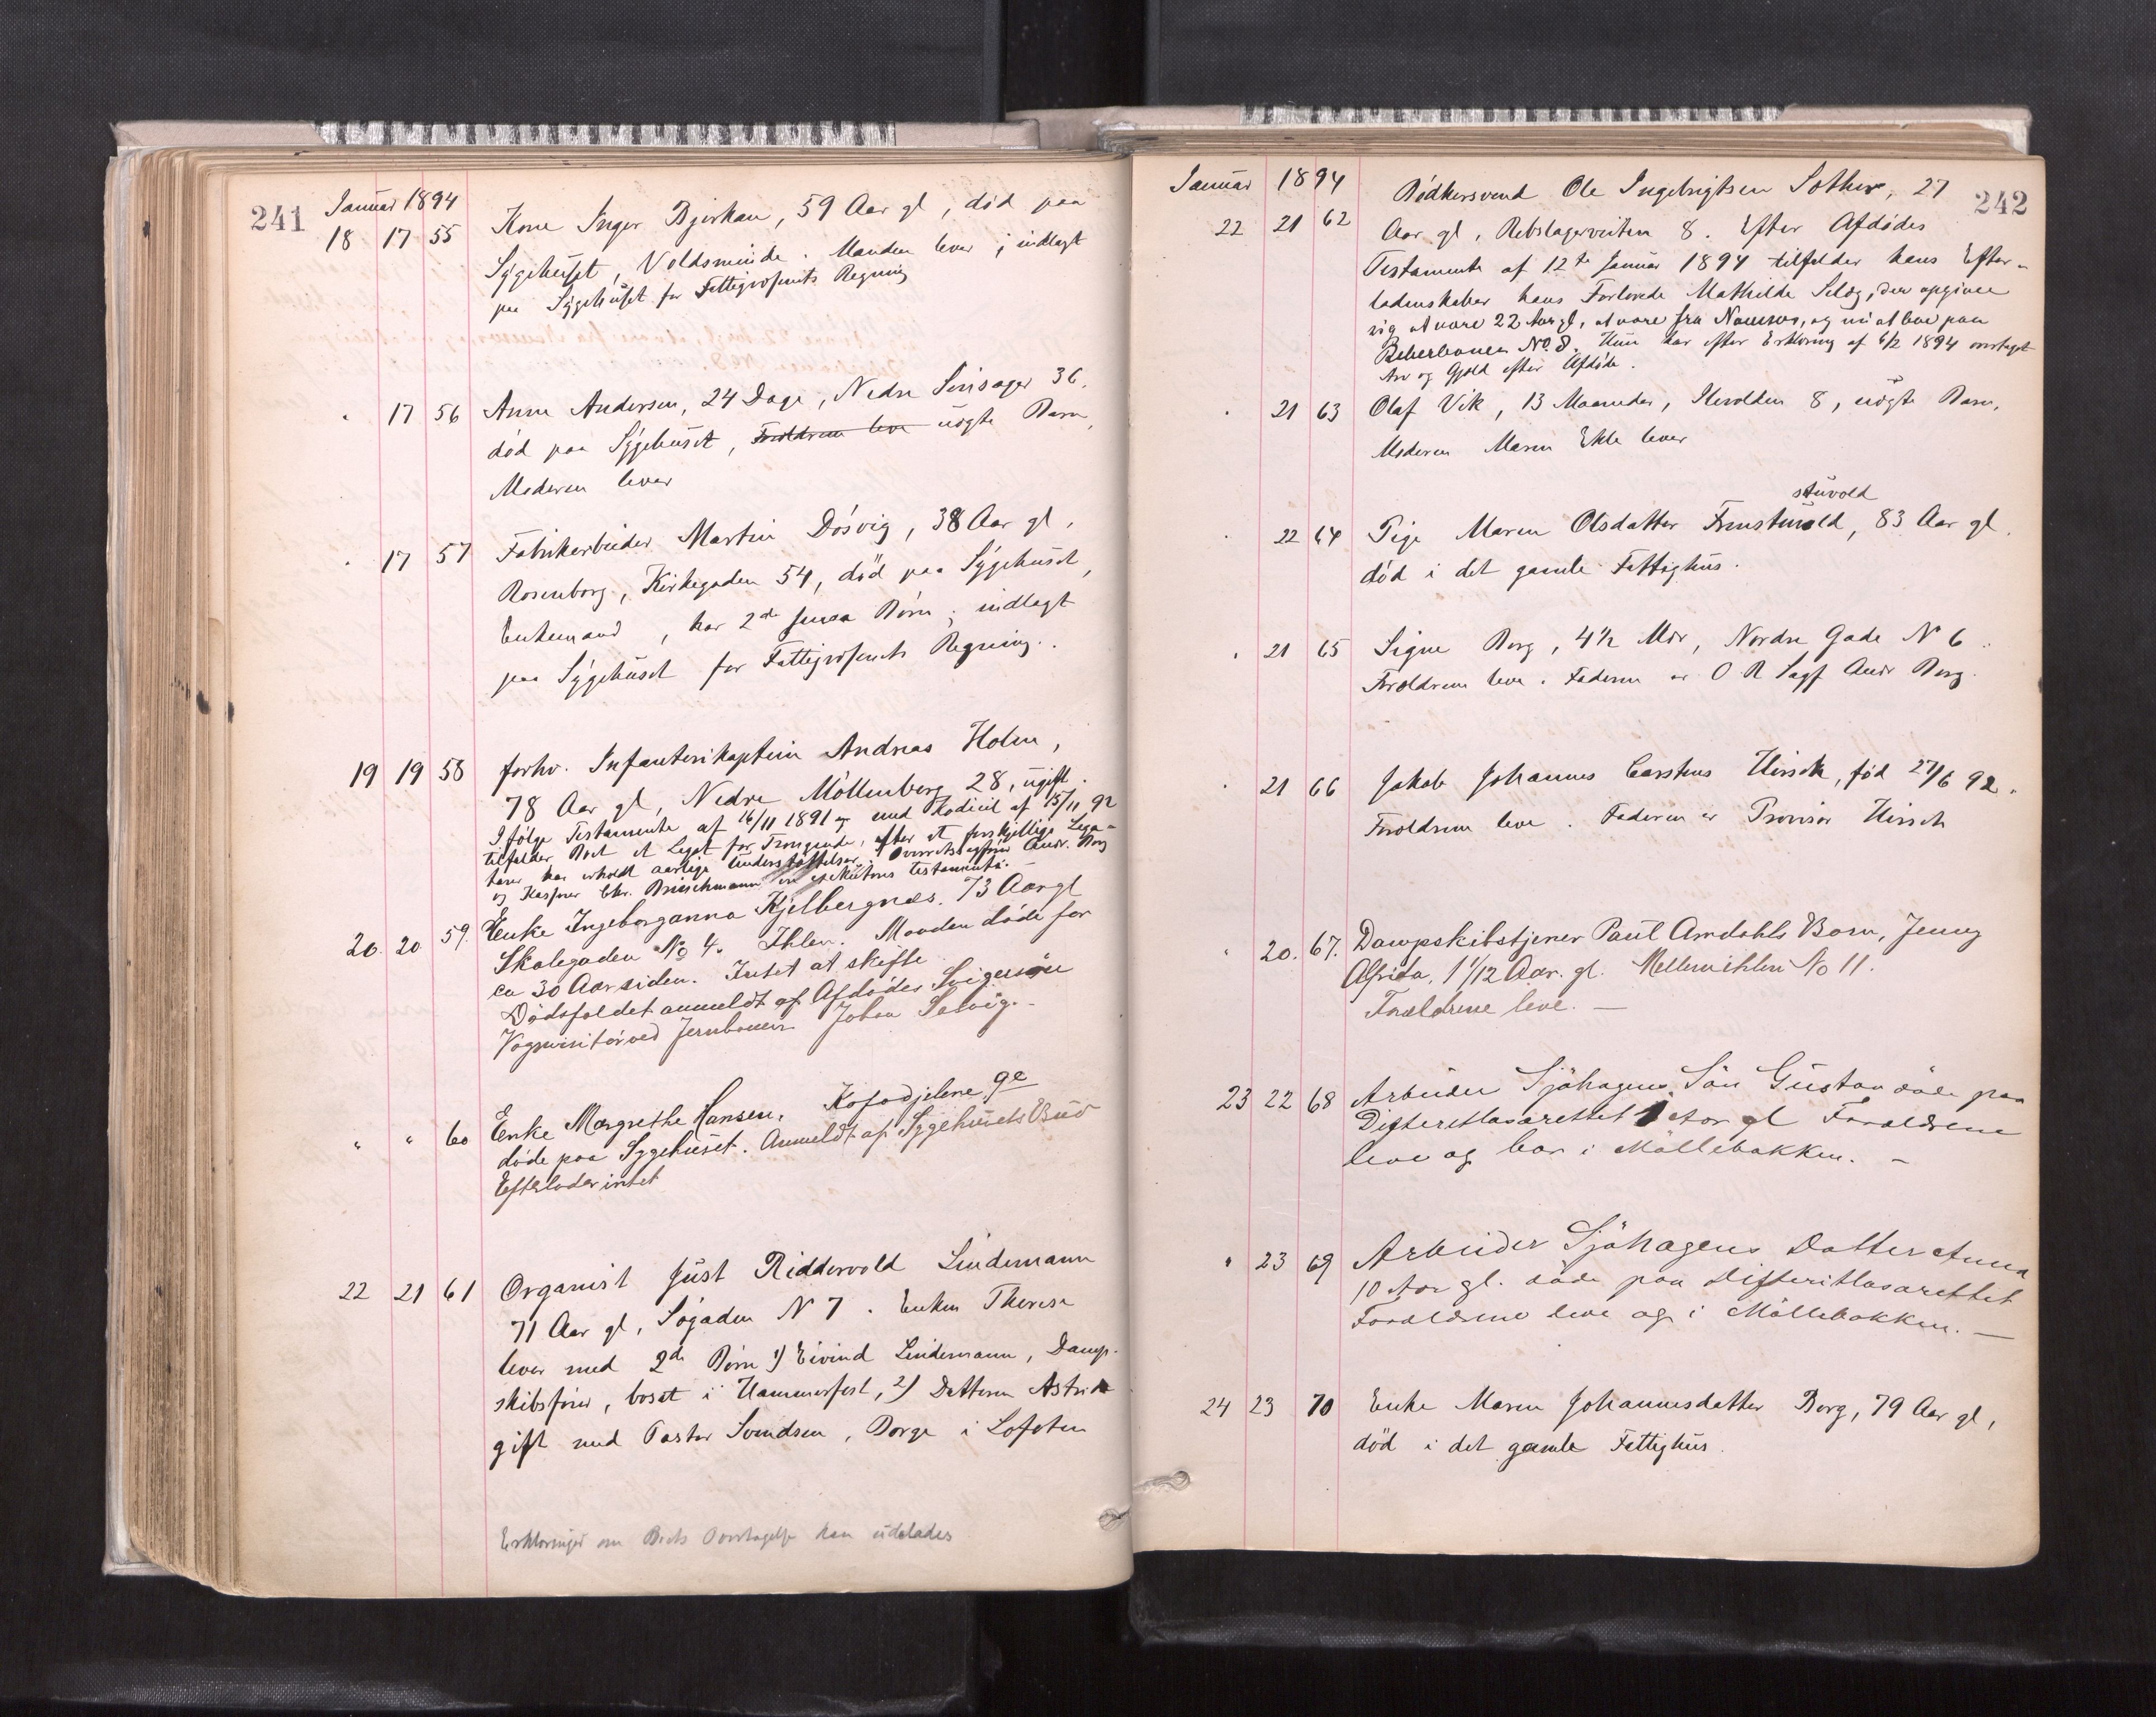 241
Januar 1894
18 17 55 Kone Inger Bjerkan, 59 Aar gl, död paa
Sygehuset, Voldsminde. Manden lever; indlagt
paa Sygehuset for Fattigvæsenets Regning
" 17 56 Anne Andersen, 24 Dage, Nedre 36.
död paa Sygehuset, Forældrene leve uægte Barn,
Moderen lever
" 17 57 Fabrikarbeider Martin Dösvig, 38 Aar gl,
Rosenborg, Kirkegaden 54, död paa Sygehuset,
Enkemand, har 2de smaa Börn; indlagt
paa Sygehuset for Fattigvæsenets Regning.
19 19 58 forhv. Infanterikaptein Andreas Holm,
78 Aar gl, Nedre Möllenberg 28, ugift.
Ifölge Testamente af 16/11 1891 og med Kodicil af 15/11 92
tilfalder Boet et Legat for Trængende, efter at forskjellige Lega-
tarer har erholdt aarlige Understöttelser. Overretssagförer Andr. Borg
og Kasserer Chr. Brinchmann er exekutores testamenti.
20. 20 59. Enke Ingeborganna Kjelbergnæs. 73 Aar gl
Skolegaden No 4. Ihlen. Manden döde for
ca 30 Aar siden. Intet at skifte
Dödsfaldet anmeldt af Afdödes Svigersön
Vognvisitör ved Jernbanen Johan Solvig.
" " 60 Enke Margrethe Hansen,
döde paa Sygehuset. Anmeldt af Sygehusets Bud
Efterlader intet
22 21 61 Organist Just Riddervold Lindemann
71 Aar gl, Sögaden N 7. Enken Therese
lever med 2de Börn 1) Eivind Lindemann, Damp-
skibsförer, bosat i Hammerfest, 2) Datteren Astrid
gift med Pastor Svendsen, Borge i Lofoten
Erklæringer om Boets Overtagelse kan udelades
242
Januar 1894
22 21 62 Bödkersvend Ole Ingebrigtsen Sother, 27
Aar gl, Rebslagerveiten 8. Efter Afdödes
Testamente af 12te Januar 1894 tilfalder hans Efter-
ladenskaber hans Forlovede Mathilde Selög, der opgives
sig at være 22 Aar gl, at være fra Namsos, og nu at bo paa
No. 8. Hun har efter Erklæring af 6/2 1894 overtaget
Arv og Gjæld efter Afdöde.
" 21 63 Olaf Vik, 13 Maaneder, Ilevolden 8, uægte Barn,
Moderen Maren Ekle lever
stuvold
" 22 64 Pige Maren Olsdatter, 83 Aar gl.
död i det gamle Fattighus.
" 21 65 Signe Borg, 4 1/2 Mdr, Nordre Gade N 6.
Forældrene leve. Faderen er O R Sagf Andr Borg.
" 21 66 Jakob Johannes Carstens Hirsch, föd 27/6 92.
Forældrene leve. Faderen er Provisor Hirsch
" 20. 67. Dampskibstjener Paul Amdahls Barn, Jenny
Alfrida, 1 1/12 Aar. gl. Mellemihlen No 11.
Forældrene leve. —
23 22 68 Arbeider Sjöhagens Sön Gustav döde paa
Difteritlasarettet 1 Aar gl Forældrene
leve og bor i Möllebakken. —
" 23 69 Arbeider Sjöhagens Datter Anna
10 Aar gl. döde paa Difteritlasarettet
Forældrene leve og i Möllebakken. —
24 23 70 Enke Maren Johannesdatter Berg, 79 Aar gl,
död i det gamle Fattighus.